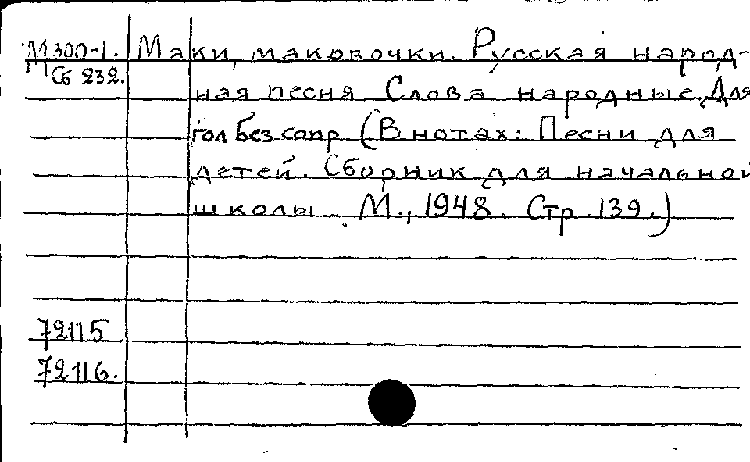 М300-1. Маки, маковочки. Русская народ-
Сб 232.
ная песня Слова народные. Для
гол без сопр (В нотах: Песни для
детей. Сборник для начальной
школы. М., 1948. Стр. 139.)
72115
72116.